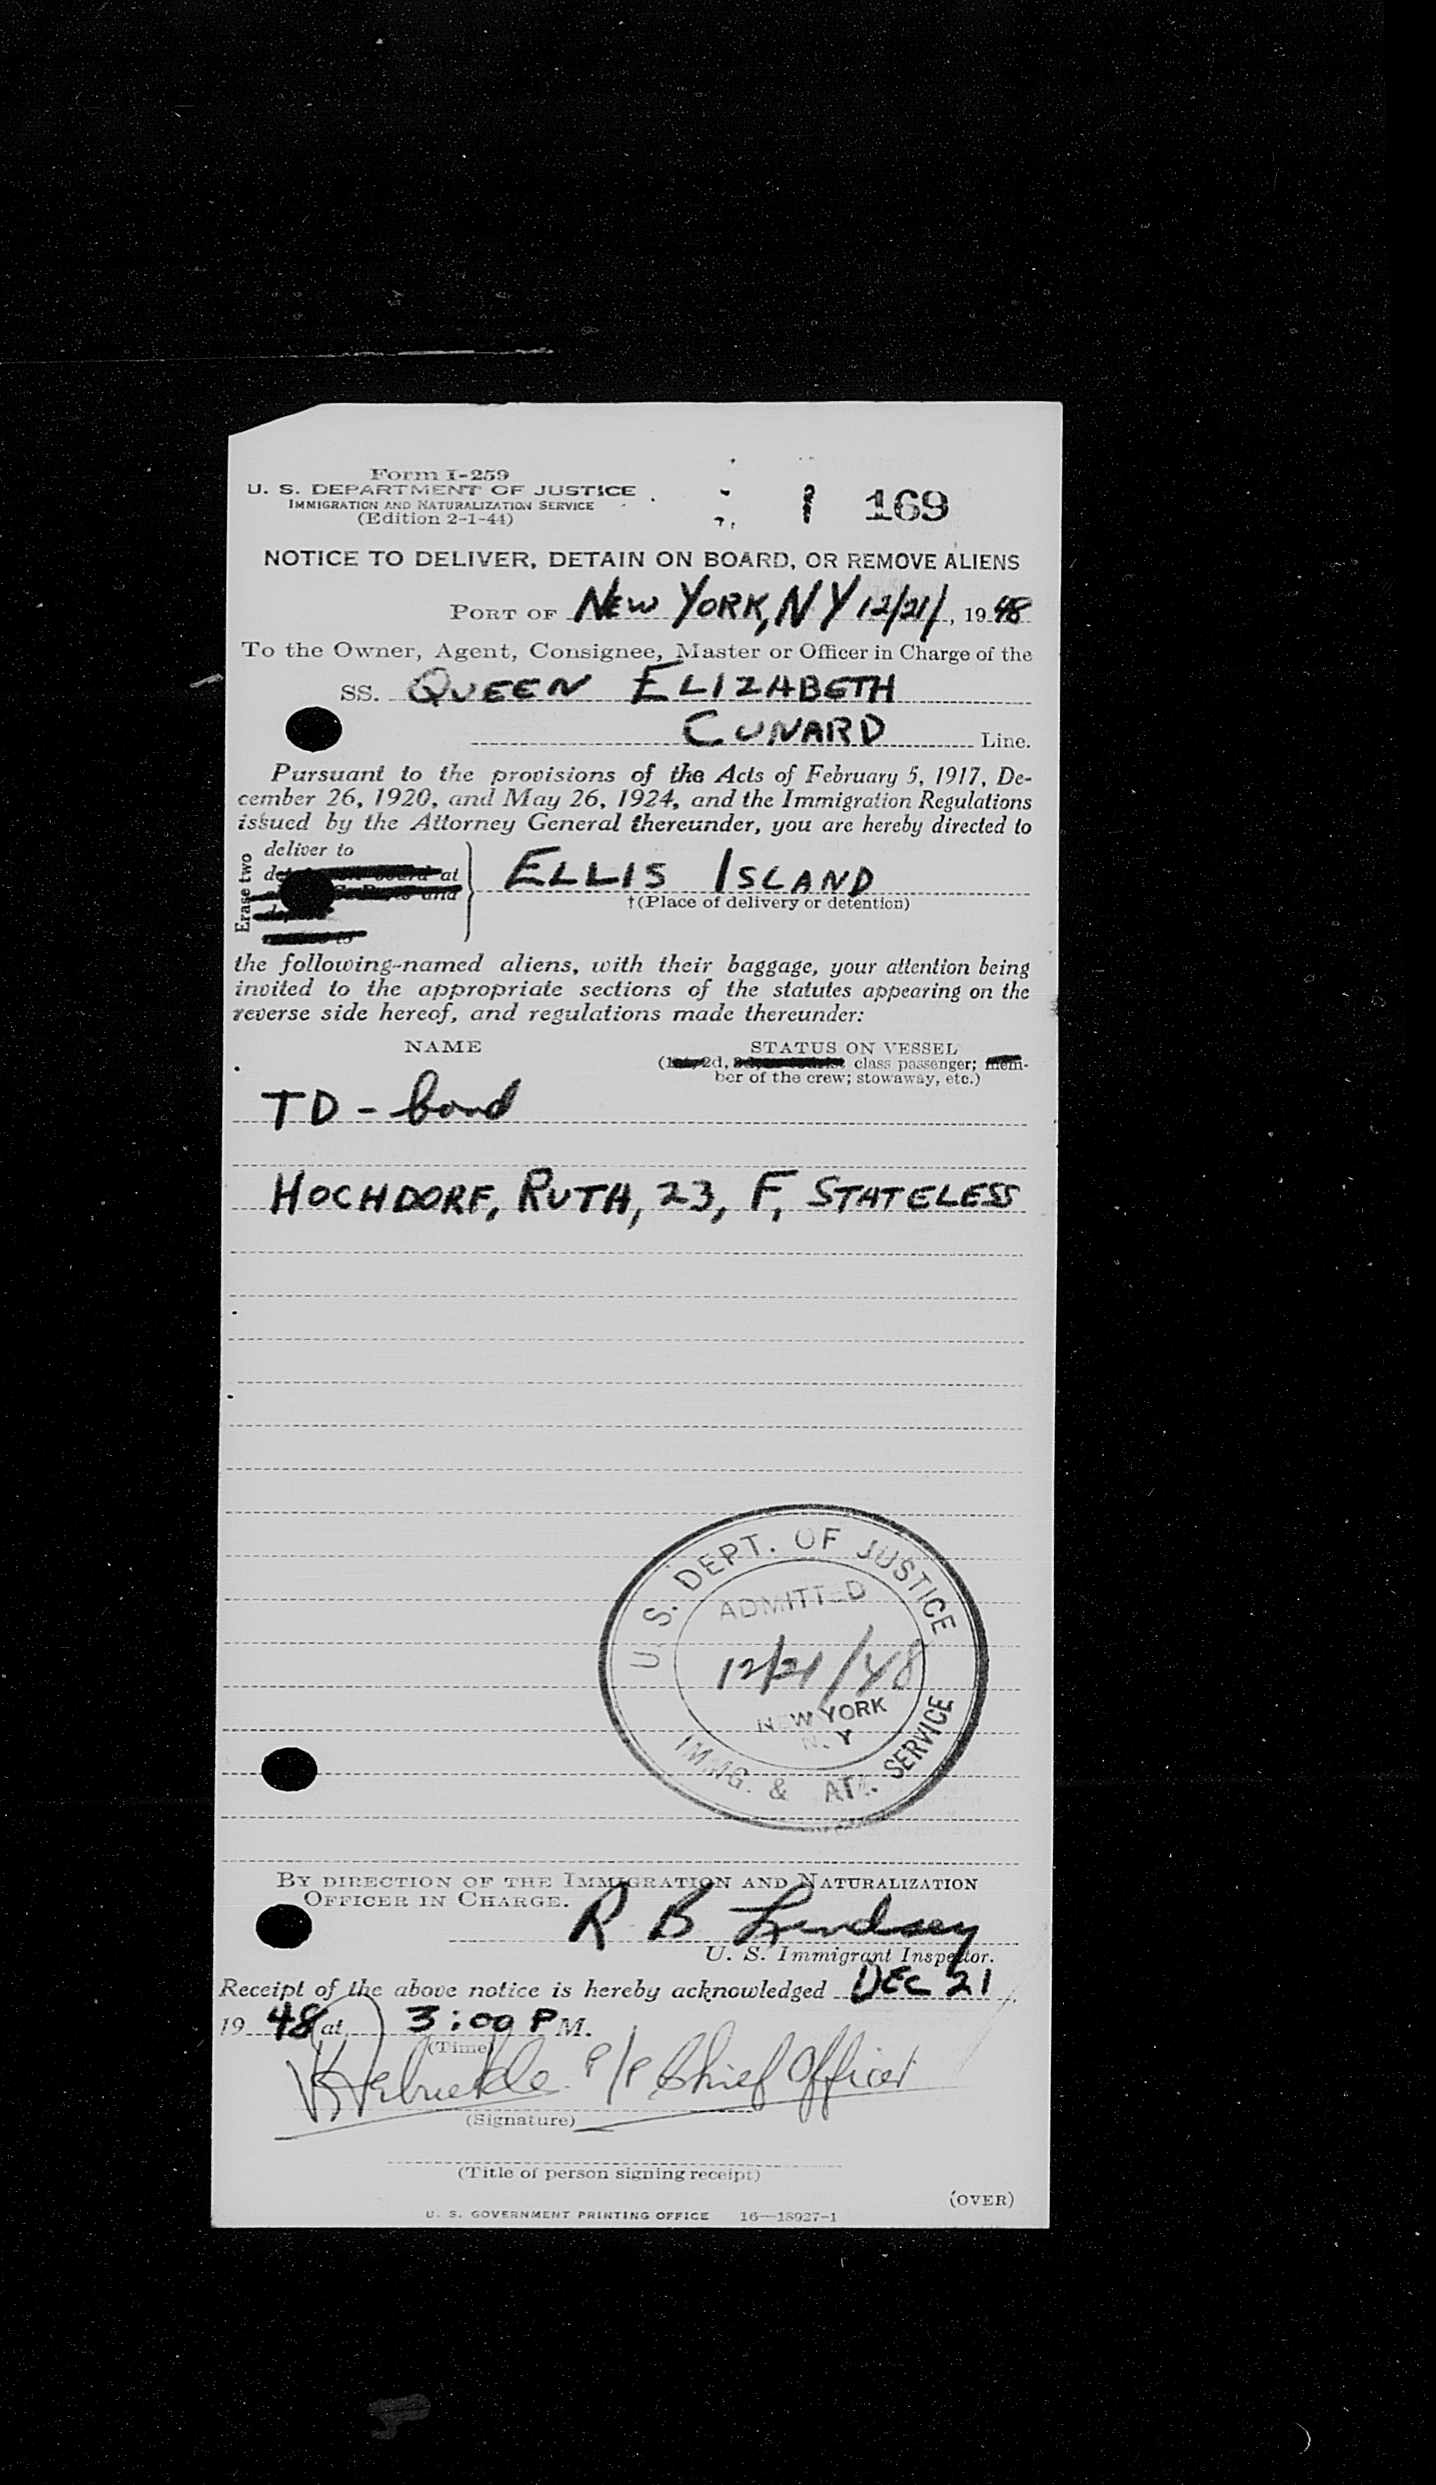 Form I-259
U. S. DEPARTMENT OF JUSTICE
IMMIGRATION AND NATURALIZATION SERVICE
(Edition 2-1-44)
169
NOTICE TO DELIVER, DETAIN ON BOARD, OR REMOVE ALIENS
PORT OF NEW YORK, NY 12/21/, 1948
To the Owner, Agent, Consignee, Master or Officer in Charge of the
SS. QUEEN ELIZABETH
CUNARD Line.
Pursuant to the provisions of the Acts of February 5, 1917, De-
cember 26, 1920, and May 26, 1924, and the Immigration Regulations
issued by the Attorney General thereunder, you are hereby directed to
Erase two
deliver to
at
and
ELLIS ISLAND
†(Place of delivery or detention)
the following-named aliens, with their baggage, your attention being
invited to the appropriate sections of the statutes appearing on the
reverse side hereof, and regulations made thereunder:
NAME STATUS ON VESSEL
2d, class passenger; mem-
ber of the crew; stowaway, etc.)
TD - bond
HOCHDORF, RUTH, 23, F, STATELESS
U. S. DEPT. OF JUSTICE
ADMITTED
12/21/48
NEW YORK
N. Y
IMMG. & NAT. SERVICE
BY DIRECTION OF THE IMMIGRATION AND NATURALIZATION
OFFICER IN CHARGE.
R B Lindsey
U. S. Immigrant Inspector.
Receipt of the above notice is hereby acknowledged DEC 21,
1948 at 3:00 P M.
(Time)
P/P Chief Officer
(Signature)
(Title of person signing receipt)
(OVER)
U. S. GOVERNMENT PRINTING OFFICE 16—18927-1